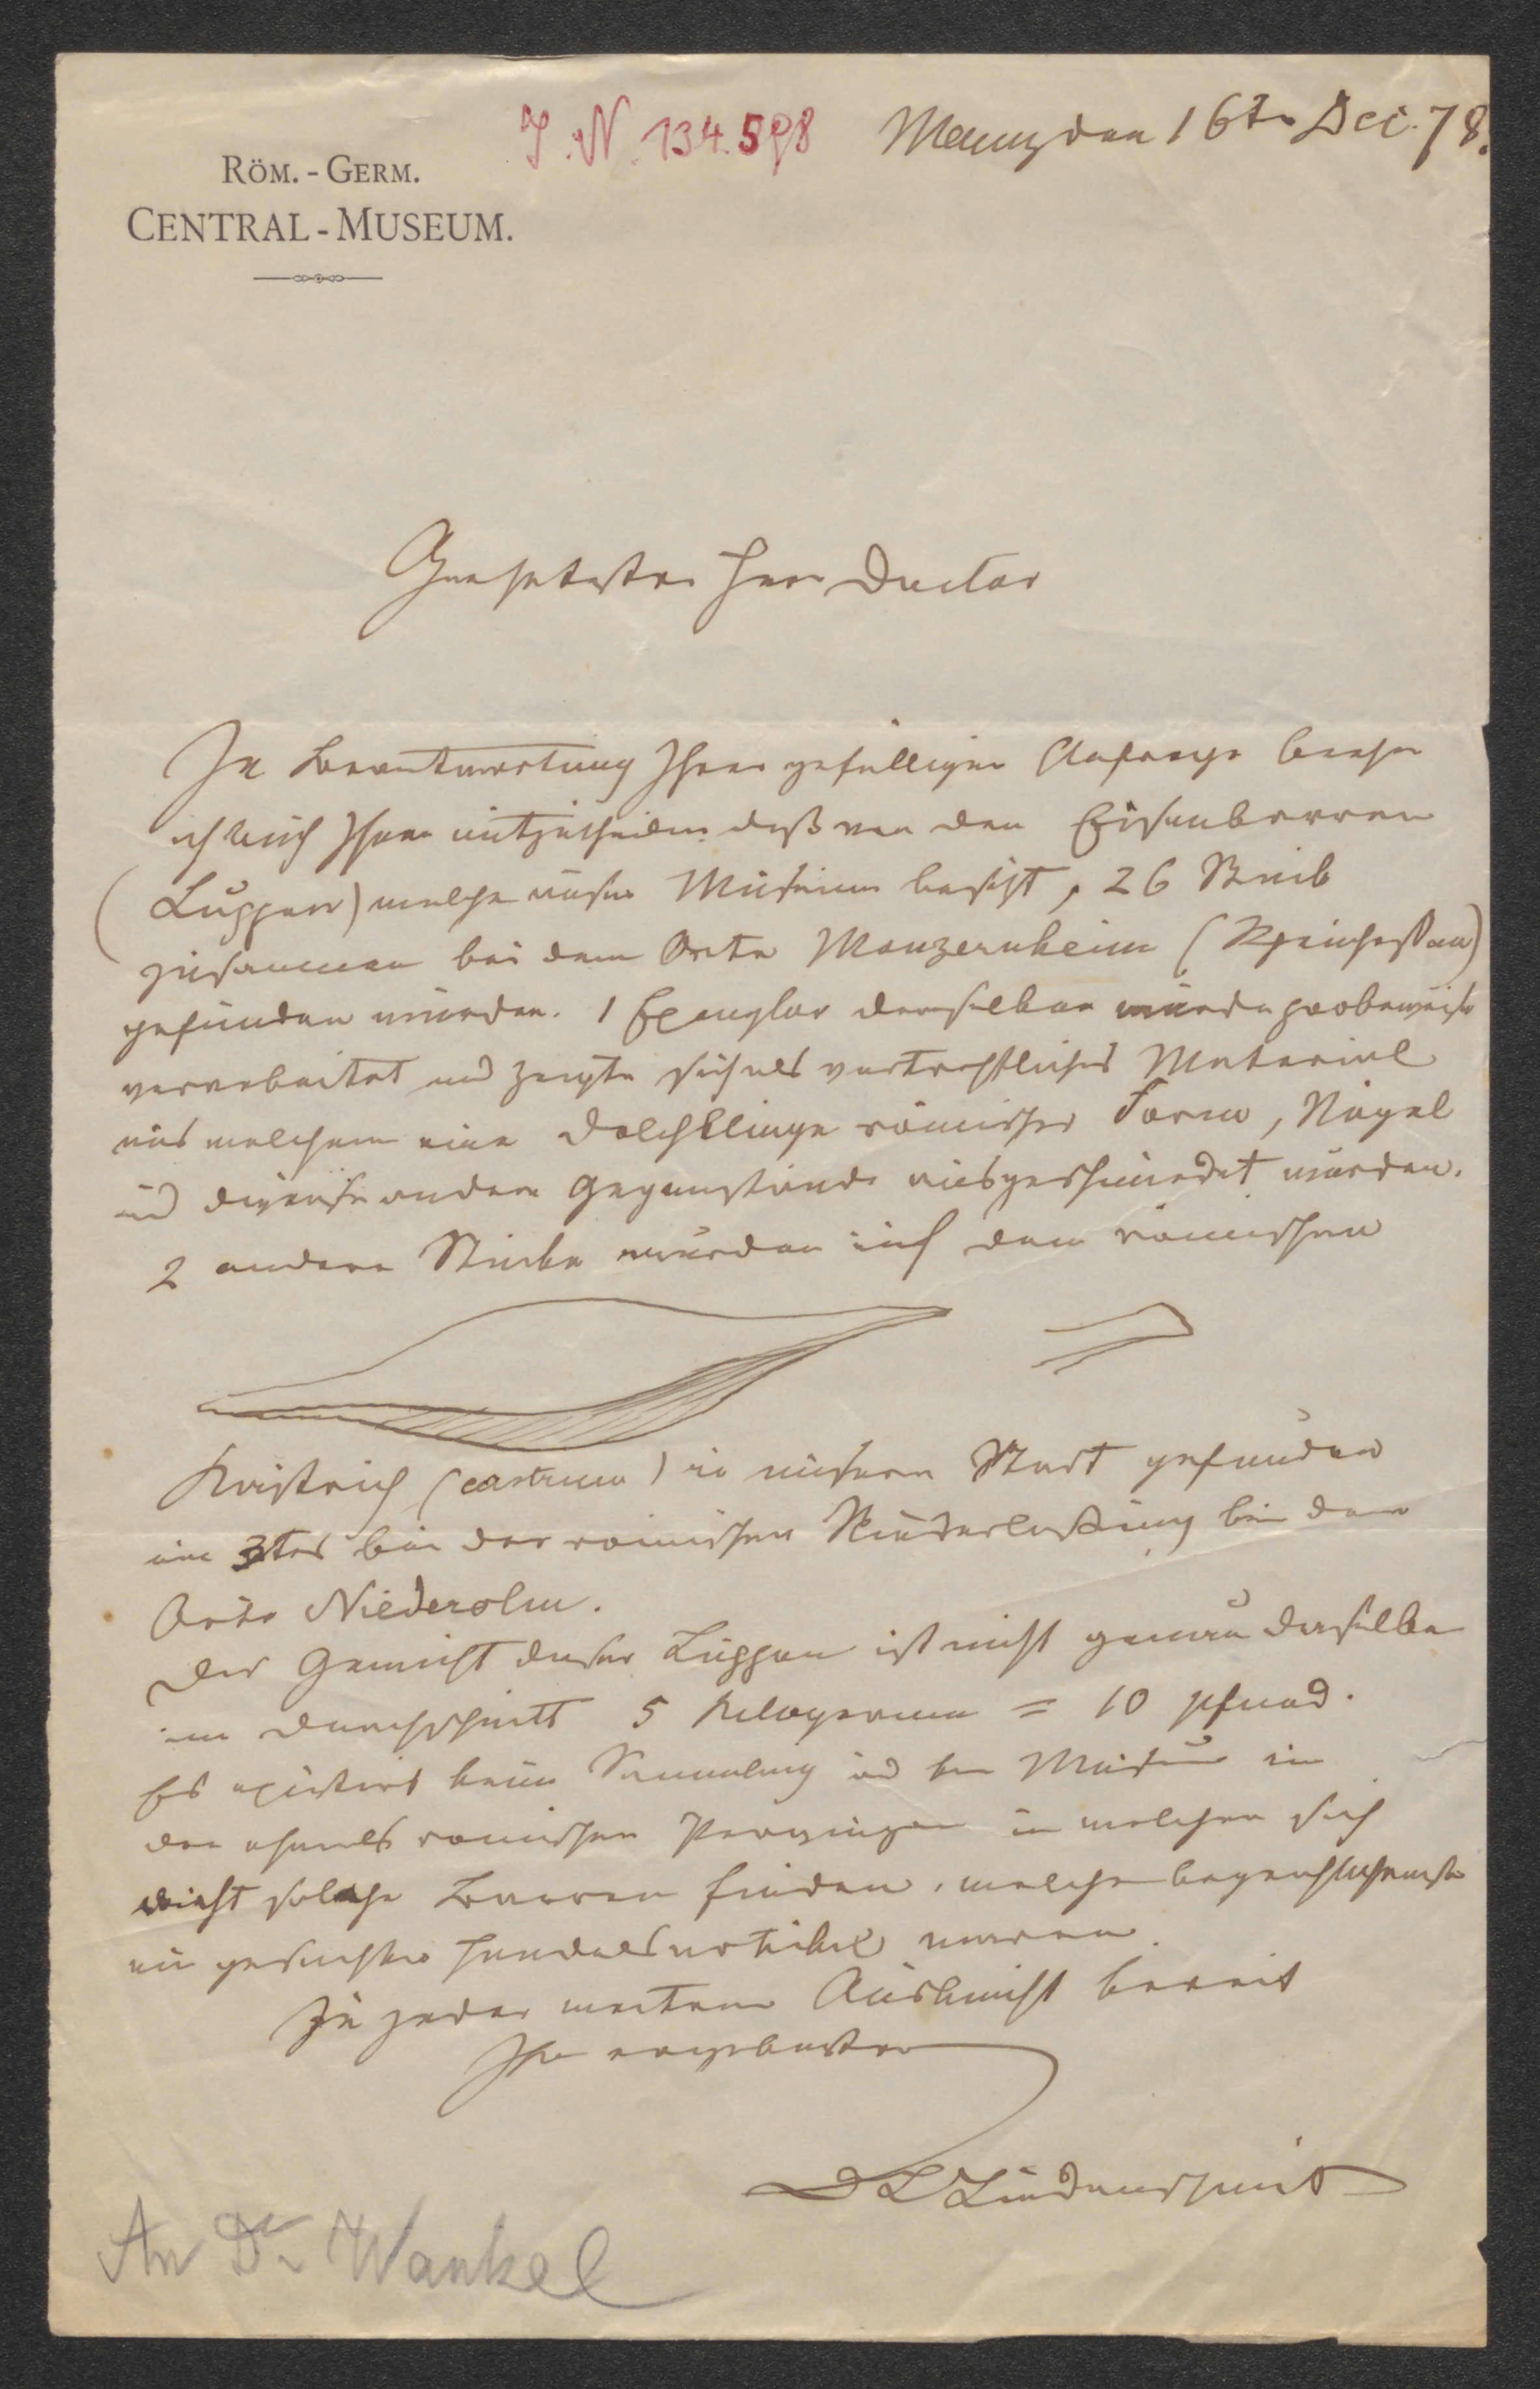 RÖM.-GERM.
CENTRAL-MUSEUM.
J. N. 134.598
Mainz den 16tn Dec. 78.
Geehrtester Herr Doctor
In Beantwortung Ihrer gefälligen Anfrage beehre
ich mich Ihnen mitzutheilen daß von den Eisenbarren
(Luppen) welche unser Museum besitzt, 26 Stück
zusammen bei dem Orte Monzernheim (Rheinhessen)
gefunden wurden. 1 Exemplar derselben wurde probeweise
verarbeitet und zeigte sich als vortreffliches Material
aus welchem eine Dolchklinge römischer Form, Nägel
und diverse andere Gegenstände ausgeschmiedet wurden.
2 andere Stücke wurden auf dem römischen
Kästrich (castrum) in unserer Stadt gefunden
ein 3tes bei der römischen Niederlassung bei dem
Orte Niederolm.
Das Gewicht dieser Luppen ist nicht genau dasselbe
im Durchschnitt 5 Kilogramm = 10 Pfund.
Es existirt keine Sammlung und kein Museum in
den ehmals römischen Provinzen in welchen sich
nicht solche Barren finden, welche
ein gesuchter Handelsartikel waren.
Zu jeder weitern Auskunft bereit
Ihr ergebenster
D L Lindenschmit
An Dr. Wankel